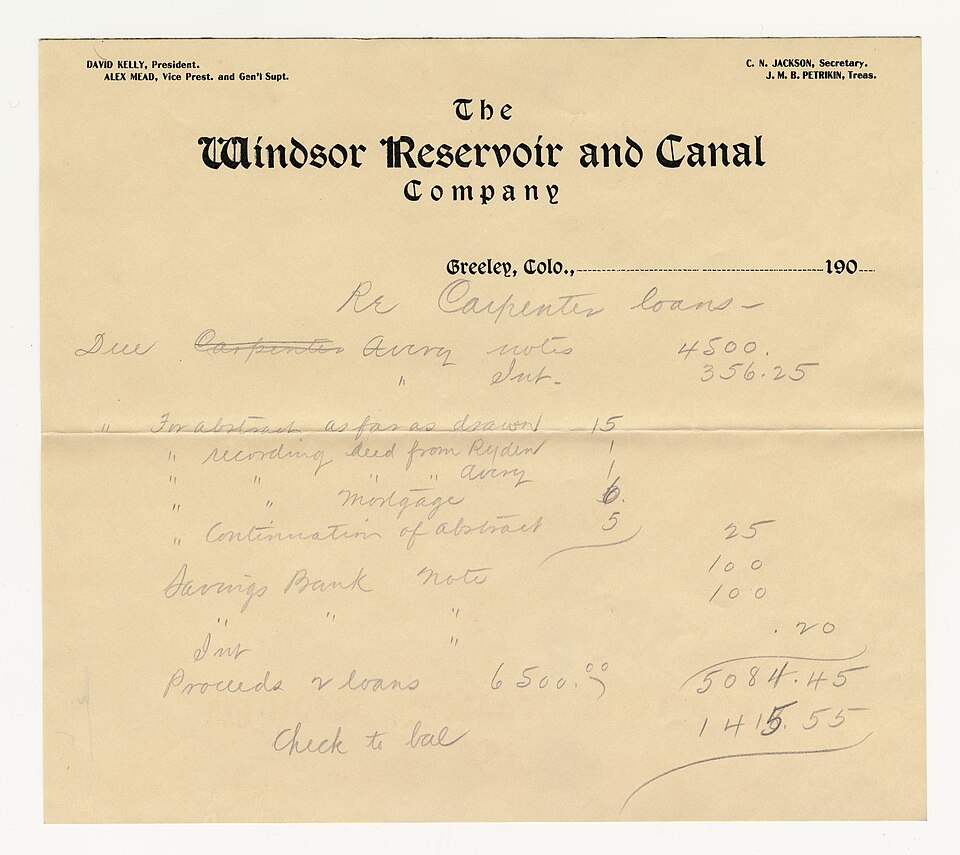 DAVID KELLY, President.
ALEX MEAD, Vice Prest. and Gen'l Supt.
C. N. JACKSON, Secretary.
J. M. B. PETRIKIN, Treas.
The
Windsor Reservoir and Canal
Company
Greeley, Colo., 190
Re Carpenter loans -
Due Carpenter Avery notes 4500.
" Int. 356.25
" For abstract as far as drawn 15
" recording deed from Ryden 1
" " " " Avery 1
" " Mortgage
" Continuation of abstract 5 25
Savings Bank Note 100
" " " 100
Int " .20
Proceeds 2 loans 6500.00 5084.45
Check to bal 1415.55